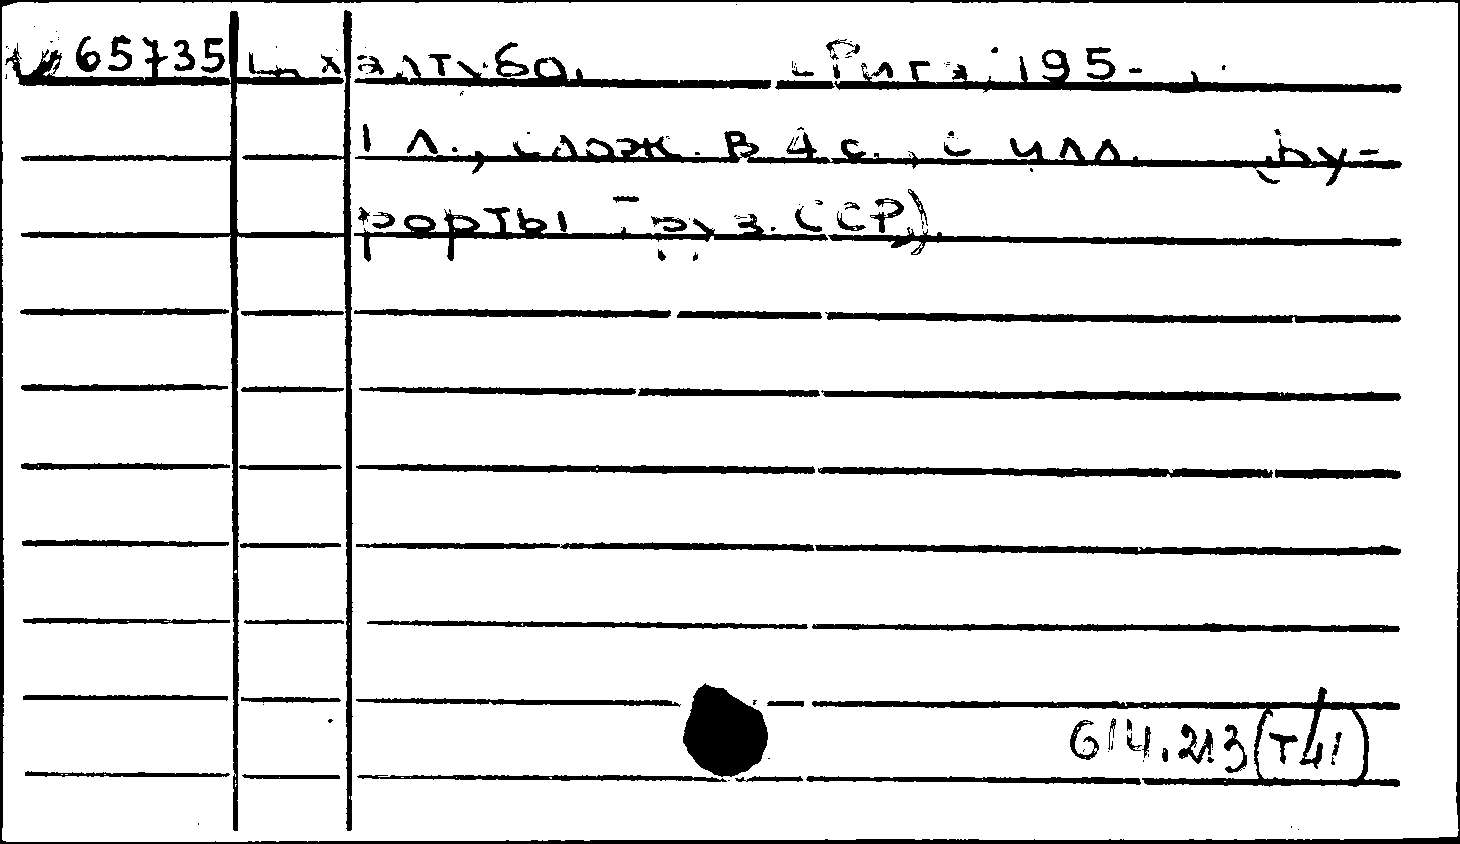 65735 Цхалтубо. Рига, 195-.
1 л., слож. в 4 с., с илл. (Ку-
рорты Груз. ССР).
614.213(Т41)